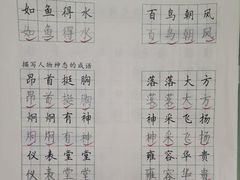 如鱼得水 百鸟朝凤
如鱼得水 百鸟朝凤
描写人物神态的成语
昂首挺胸 落落大方
昂首挺胸 落落大方
炯炯有神 神采飞扬
炯炯有神 神采飞扬
仪表堂堂 雍容华贵
仪表堂堂 雍容华贵